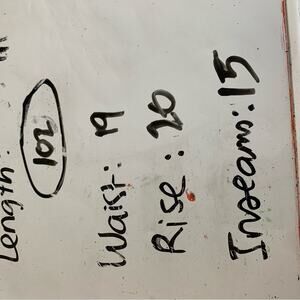 Length:
102
Waist: 19
Rise: 20
Inseams: 15